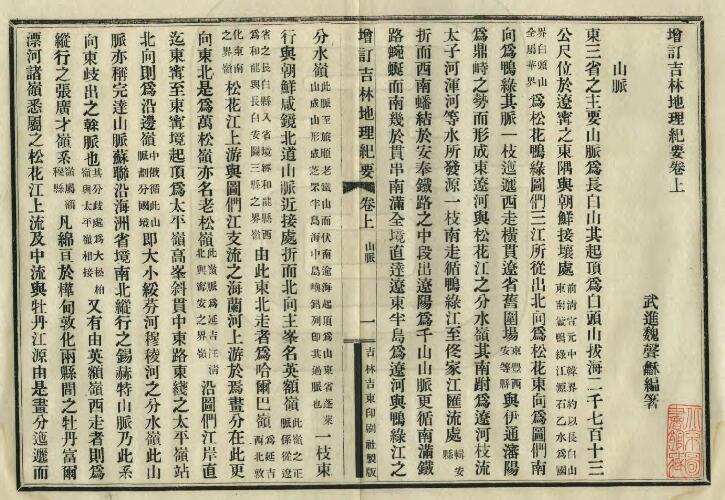 增訂吉林地理紀要卷上
武進魏聲龢編箸
山脈
東三省之主要山脈爲長白山其起頂爲白頭山拔海二千七百十三
公尺位於遼寧之東隅與朝鮮接壤處前清宣元中韓界約以長白山東南流鴨綠江源石乙水爲國
界白頭山全屬華界爲松花鴨綠圖們三江所從出北向爲松花東向爲圖們南
向爲鴨綠其脈一枝迤邐西走橫貫遼省舊圍場東豐西安等縣與伊通瀋陽
爲鼎峙之勢而形成東遼河與松花江之分水嶺其南跗爲遼河枝流
太子河渾河等水所發源一枝南走循鴨綠江至佟家江匯流處輯安縣
折而西南蟠結於安奉鐵路之中段出遼陽爲千山山脈更循南滿鐵
路蜿蜒而南幾於貫串南滿全境直達遼東半島爲遼河與鴨綠江之
增訂吉林地理紀要 卷上 山脈 一 吉林吉東印刷社製版
分水嶺此脈至旅順老鐵山而伏南海起頂爲山東省蓬萊山成山形成芝罘半島海中島嶼鍋列即其過脈也一枝東
行與朝鮮咸鏡北道山脈近接處折而北向主峯名英額嶺此嶺之正脈係從遼
省之長白縣入省境經和龍縣西爲和龍與長白安圖三縣之界嶺由此東北走者爲哈爾巴嶺爲延吉西北敦
化東南之界嶺松花江上游與圖們江支流之海蘭河上游於焉畫分在此更
向東北是爲萬松嶺亦名老松嶺此嶺脈爲延吉汪清北與寧安之界嶺沿圖們江岸直
迄東寗至東寗境起頂爲太平嶺高峯斜貫中東路東綫之太平嶺站
北向則爲沿邊嶺中俄循此山脈劃分國境即大小綏芬河穆稜河之分水嶺此山
脈亦稱完達山脈蘇聯沿海洲省境南北縱行之錫赫特山脈乃此系
向東歧出之榦脈也其分歧處爲大松柏嶺與太平嶺相接又有由英額嶺西走者則爲
縱行之張廣才嶺系嶺屬額穆縣凡綿亘於樺甸敦化兩縣間之牡丹富爾
漂河諸嶺悉屬之松花江上流及中流與牡丹江源由是畫分迤邐而